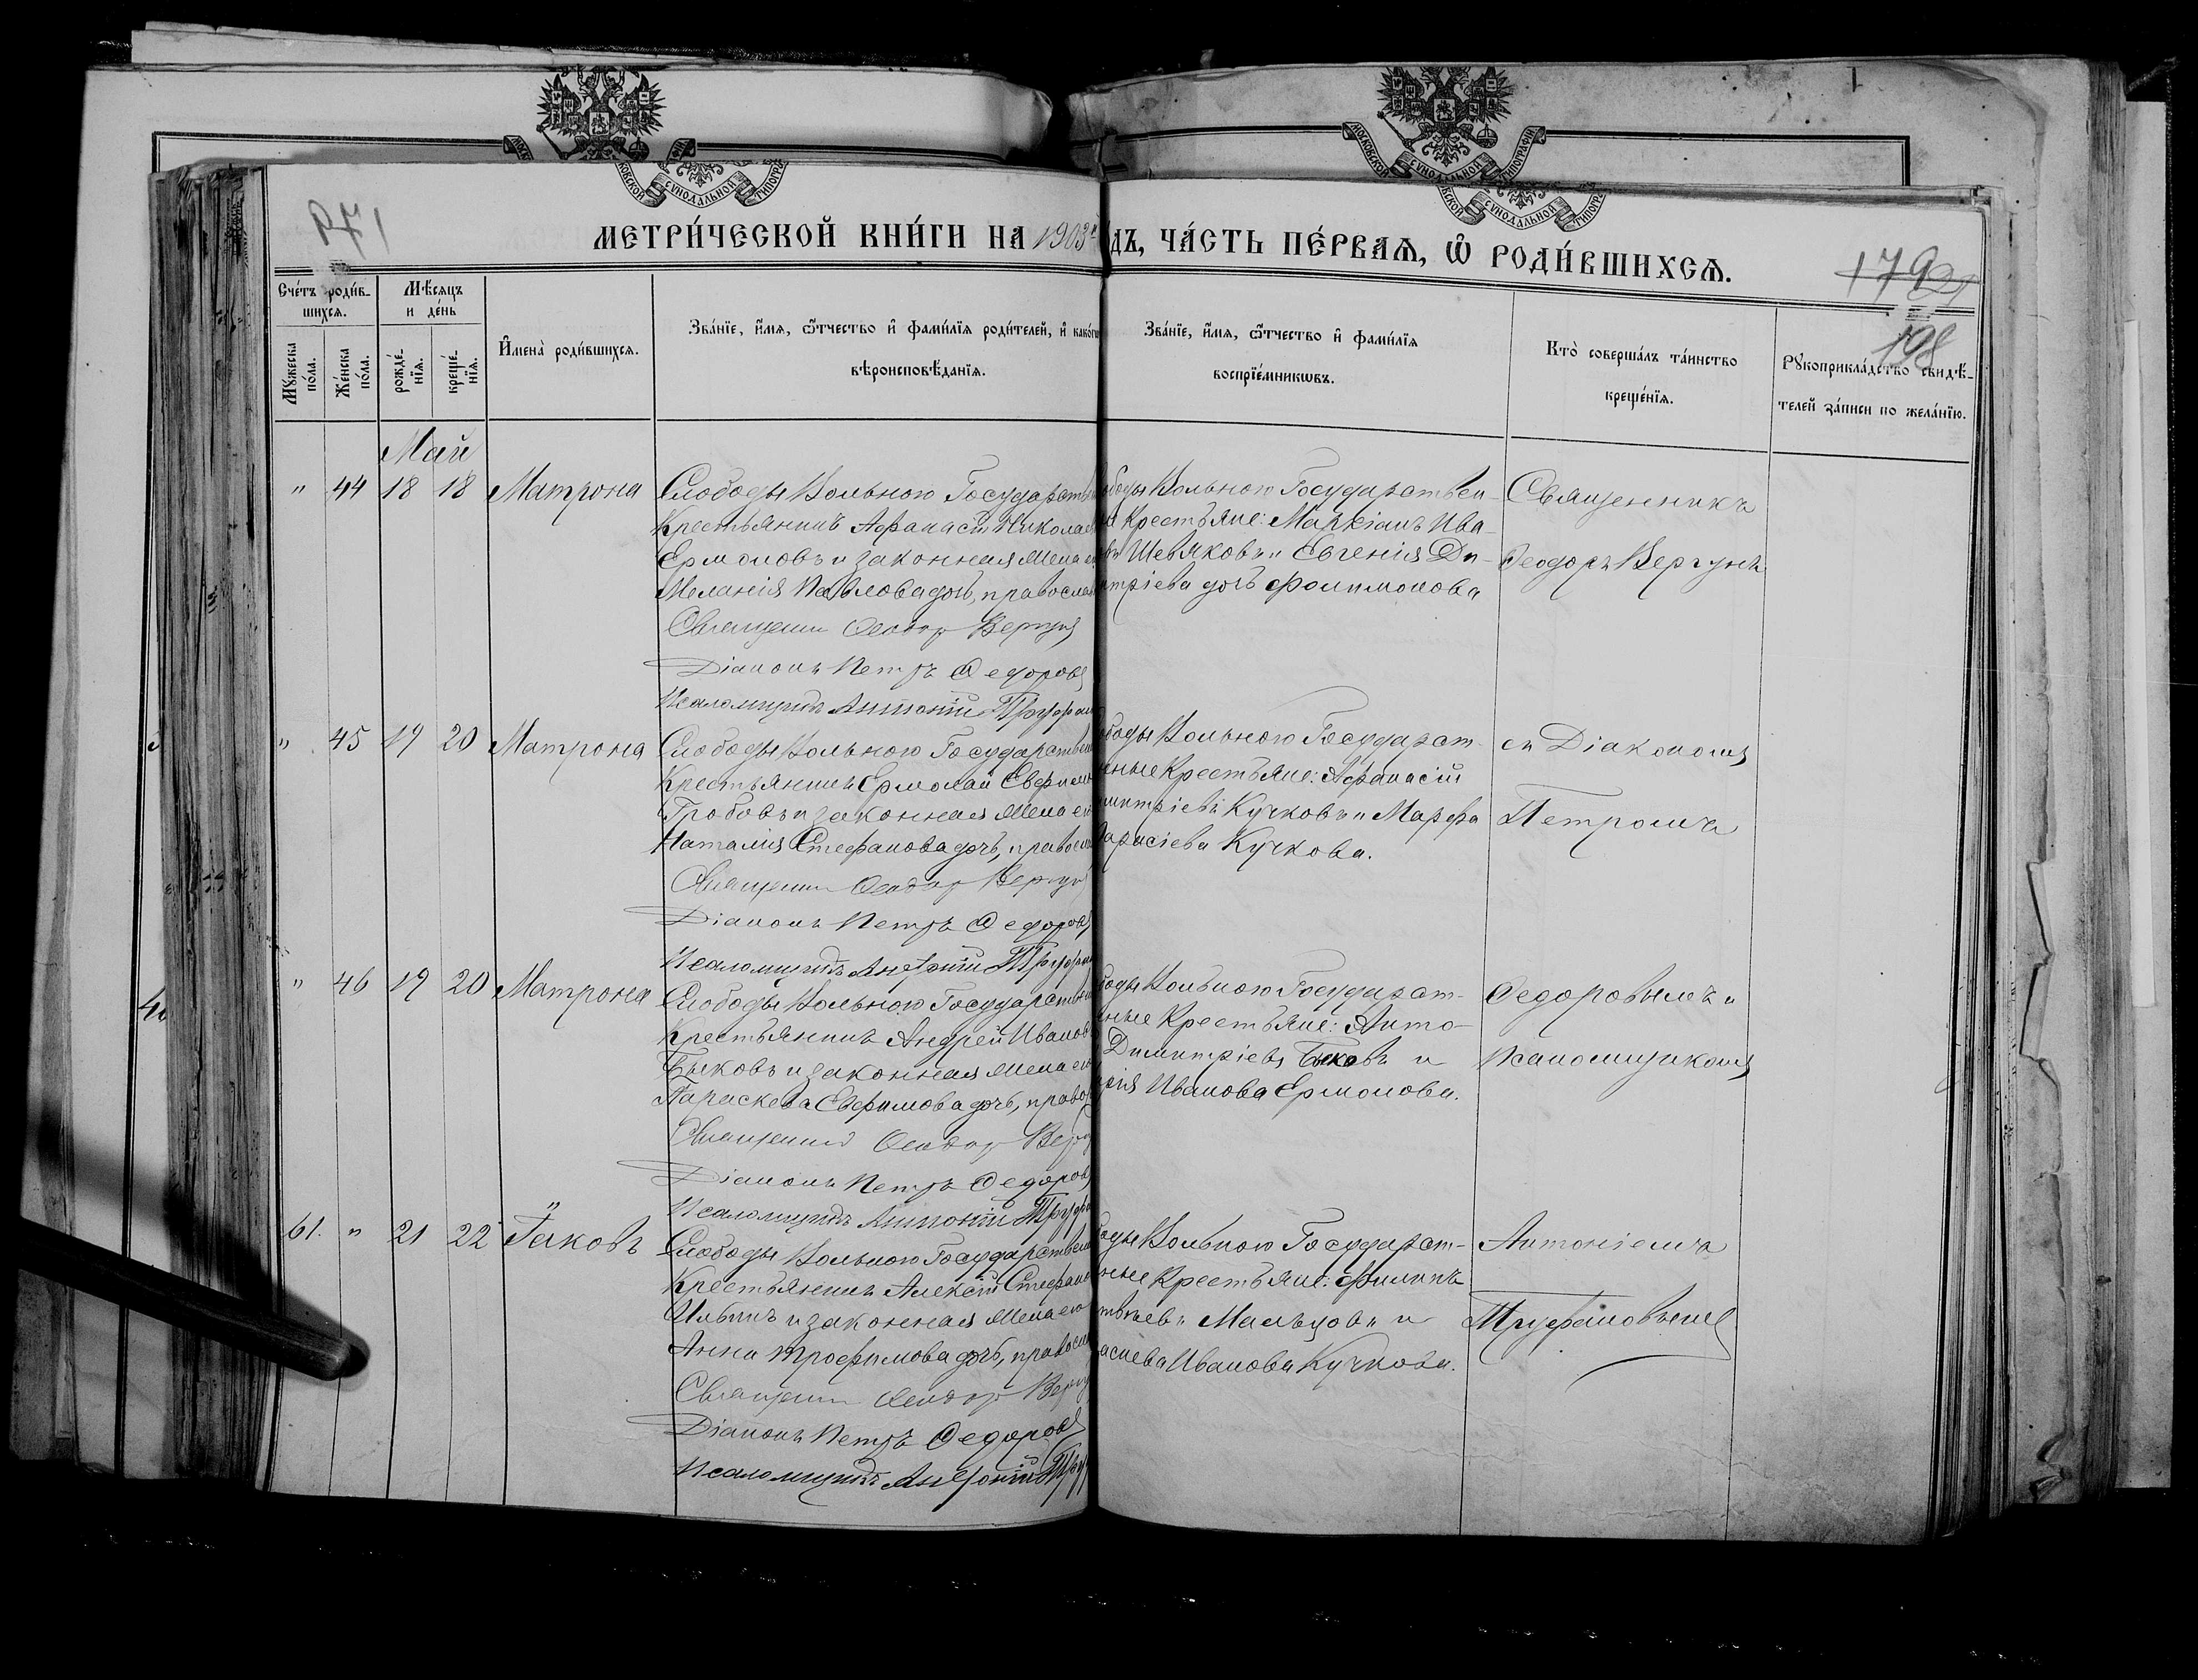 МЕТРИ́ЧЕСКОЙ КНИ́ГИ НА 1903 ДЪ, ЧА́СТЬ ПЕ́РВАѦ, Ѡ РОДИ́ВШИХСѦ.
198
Счетъ роди́в-
шихсѧ.
Мѣсѧцъ
и де́нь
Мꙋжеска
по́ла.
Же́нска
по́ла.
рожде́-
нїѧ.
креще́-
нїѧ.
И҆мена̀ роди́вшихсѧ.
Зва́нїе, и҆́мѧ, ѻ҆́тчество и҆ фами́лїѧ роди́телей, и҆ како́гѡ
вѣроисповѣ́данїѧ.
Зва́нїе, и҆́мѧ, ѻ҆́тчество и҆ фами́лїѧ
воспрїе́мникѡвъ.
Кто̀ соверша́лъ та́инство
креще́нїѧ.
Рꙋкоприкла́дство свидѣ́-
телей за́писи по жела́нїю.
Май
" 44 18 18 Матрона
Слободы Вольною Государствен
Крестьянинъ Афанасій Никола
Ермоловъ и законная жена е
Меланія Павлова дочь, правосла
Священни Ѳеодор Вергун
Діаконъ Петръ Ѳедоровъ
Псаломщикъ Антоній Труфан
боды Вольною Государствен-
Крестьяне: Маркіанъ Ива-
въ Шевяковъ и Евгенія Ди-
митріева дочь Филимонова
Священникъ
Ѳеодоръ Вергунъ
" 45 19 20 Матрона
Слободы Вольною Государствен
Крестьянинъ Ермолай Евфим
Гробовъ и законная жена ег
Наталія Стефанова дочь, правосл
Священни Ѳеодор Вергун
Діаконъ Петръ Ѳедоровъ
Псаломщикъ Антоній Труфан
боды Вольною Государст-
нные Крестьяне: Афанасій
митріевъ Кучковъ и Марфа
арасіева Кучкова.
съ Діакономъ
Петромъ
" 46 19 20 Матрона
Слободы Вольною Государствен
Крестьянинъ Андрей Иванов
Быковъ и законная жена ег
Параскева Евфимова дочь, право
Священни Ѳеодор Вергу
Діаконъ Петръ Ѳедоров
Псаломщикъ Антоній Труфа
боды Вольною Государст-
нные Крестьяне: Анто-
Димитріевъ Быковъ и
рія Иванова Ермолова.
Ѳедоровымъ и
Псаломщикомъ
61. " 21 22 Іаковъ
Слободы Вольною Государствен
Крестьянинъ Алексій Стефан
Ильинъ и законная жена ег
Анна Трофимова дочь, правосл
Священни Ѳеодор Верг
Діаконъ Петръ Ѳедоровъ
Псаломщикъ Антоній Тру
боды Вольною Государст-
нные Крестьяне: Филиппъ
твѣевъ Мальцовъ и
аскева Иванова Кучкова.
Антоніемъ
Труфановымъ